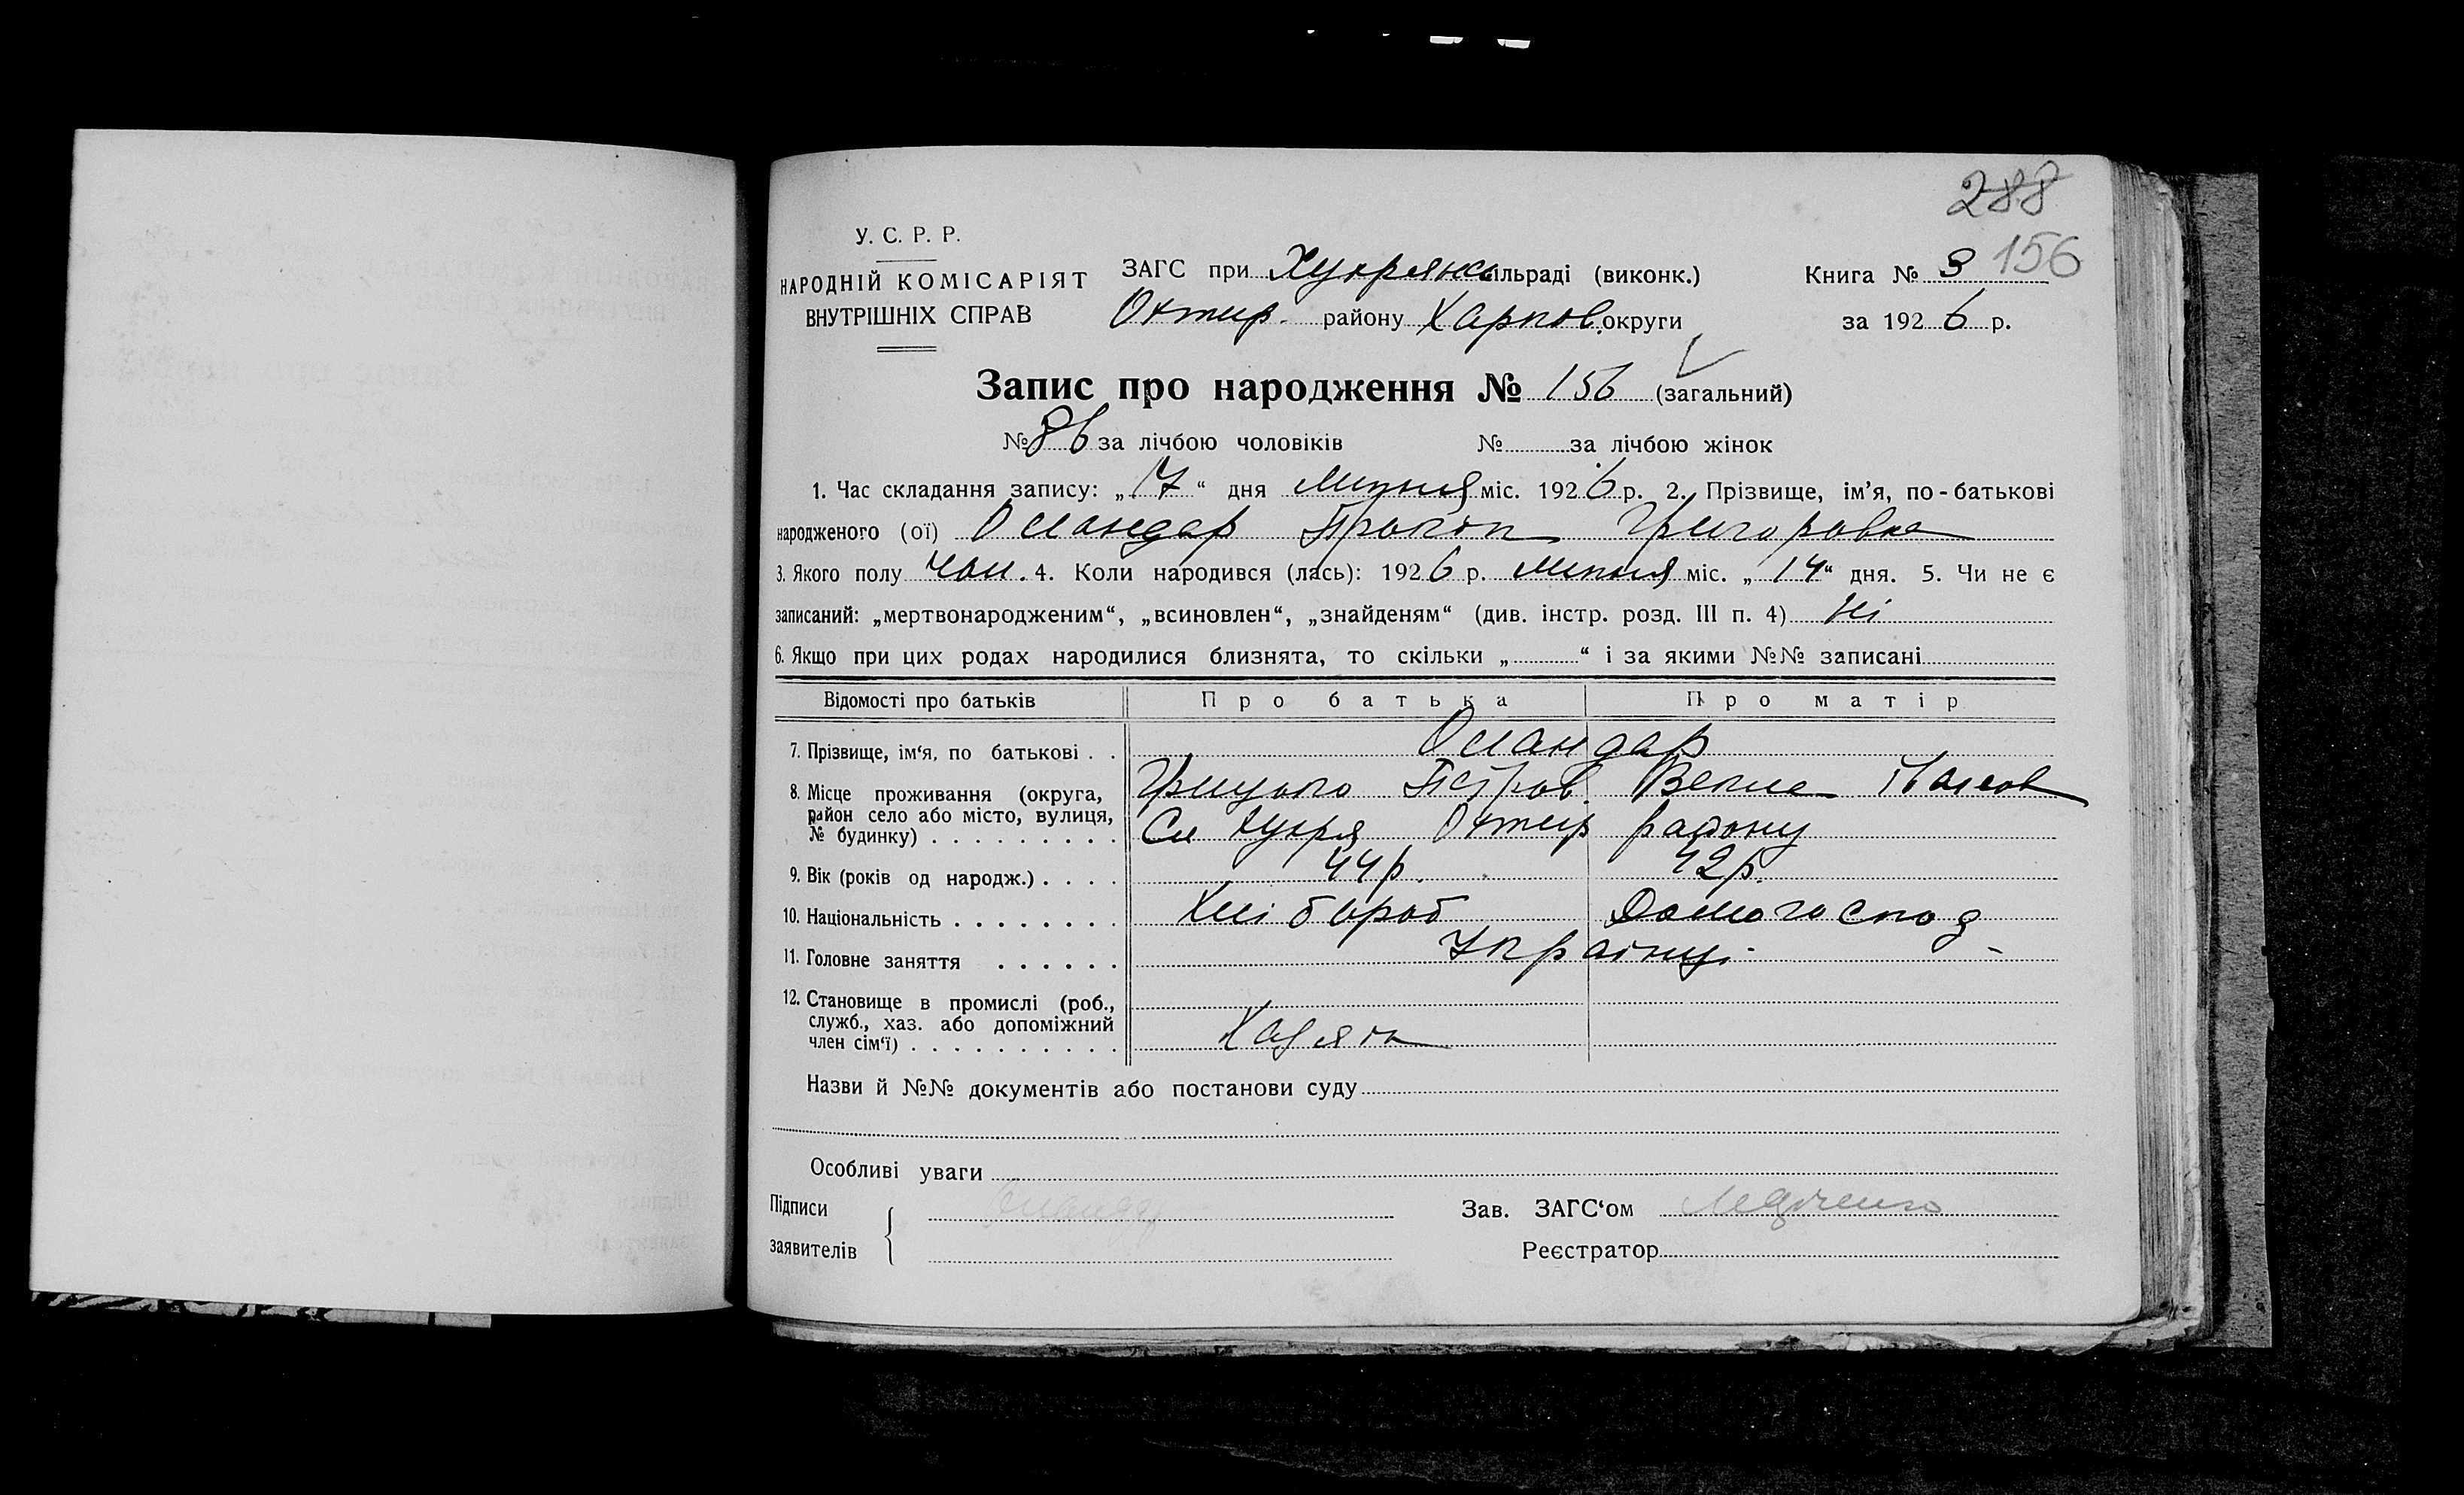 288
У. С. Р. Р.
НАРОДНІЙ КОМІСАРІЯТ
ВНУТРІШНІХ СПРАВ
ЗАГС при Хухрянс сільраді (виконк.)
Охтир. району Харков. округи
Книга № 3 156
за 1926 р.
Запис про народження № 156 (загальний)
№ 86 за лічбою чоловіків № за лічбою жінок
1. Час складання запису: „17“ дня Липня міс. 1926 р. 2. Прізвище, ім’я, по-батькові
народженого (ої) Оландар Прокіп Григорович
3. Якого полу чол. 4. Коли народився (лась): 1926 р. липня міс. „14“ дня. 5. Чи не є
записаний: „мертвонародженим“, „всиновлен“, „знайденям“ (див. інстр. розд. III п. 4) Ні
6. Якщо при цих родах народилися близнята, то скільки „ “ і за якими №№ записані
Відомості про батьків Про батька Про матір
7. Прізвище, ім‘я, по батькові . . Оландар
Грицько Петров.
8. Місце проживання (округа, район село або місто, вулиця, № будинку) . . . . . . . . . Сл Хухря Охтир району
9. Вік (років од народж.) . . . . 44 р. 42 р.
10. Національність . . . . . . . Хлібороб Домогоспод
11. Головне заняття . . . . . . Українці -
12. Становище в промислі (роб.,
служб., хаз. або допоміжний
член сім‘ї) . . . . . . . . . . Хазяїн
Назви й №№ документів або постанови суду
Особливі уваги
Підписи
заявителів
Зав. ЗАГС‘ом
Реєстратор